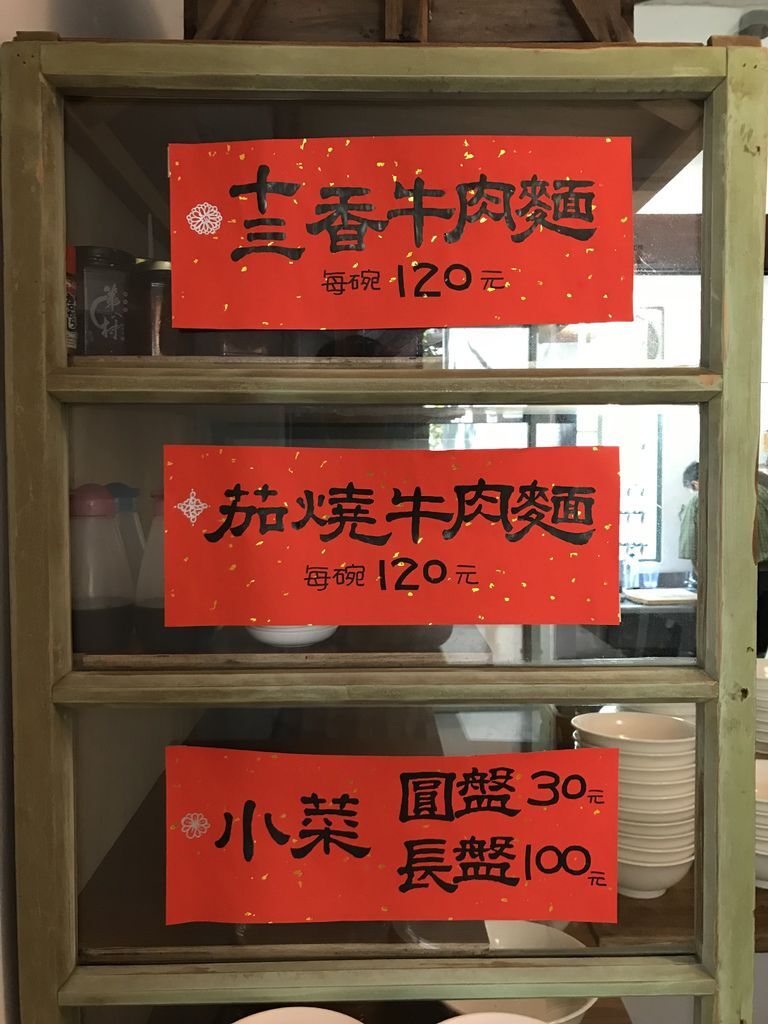 十三香牛肉麵
每碗 120 元
茄燒牛肉麵
每碗 120 元
小菜
圓盤 30元
長盤 100元